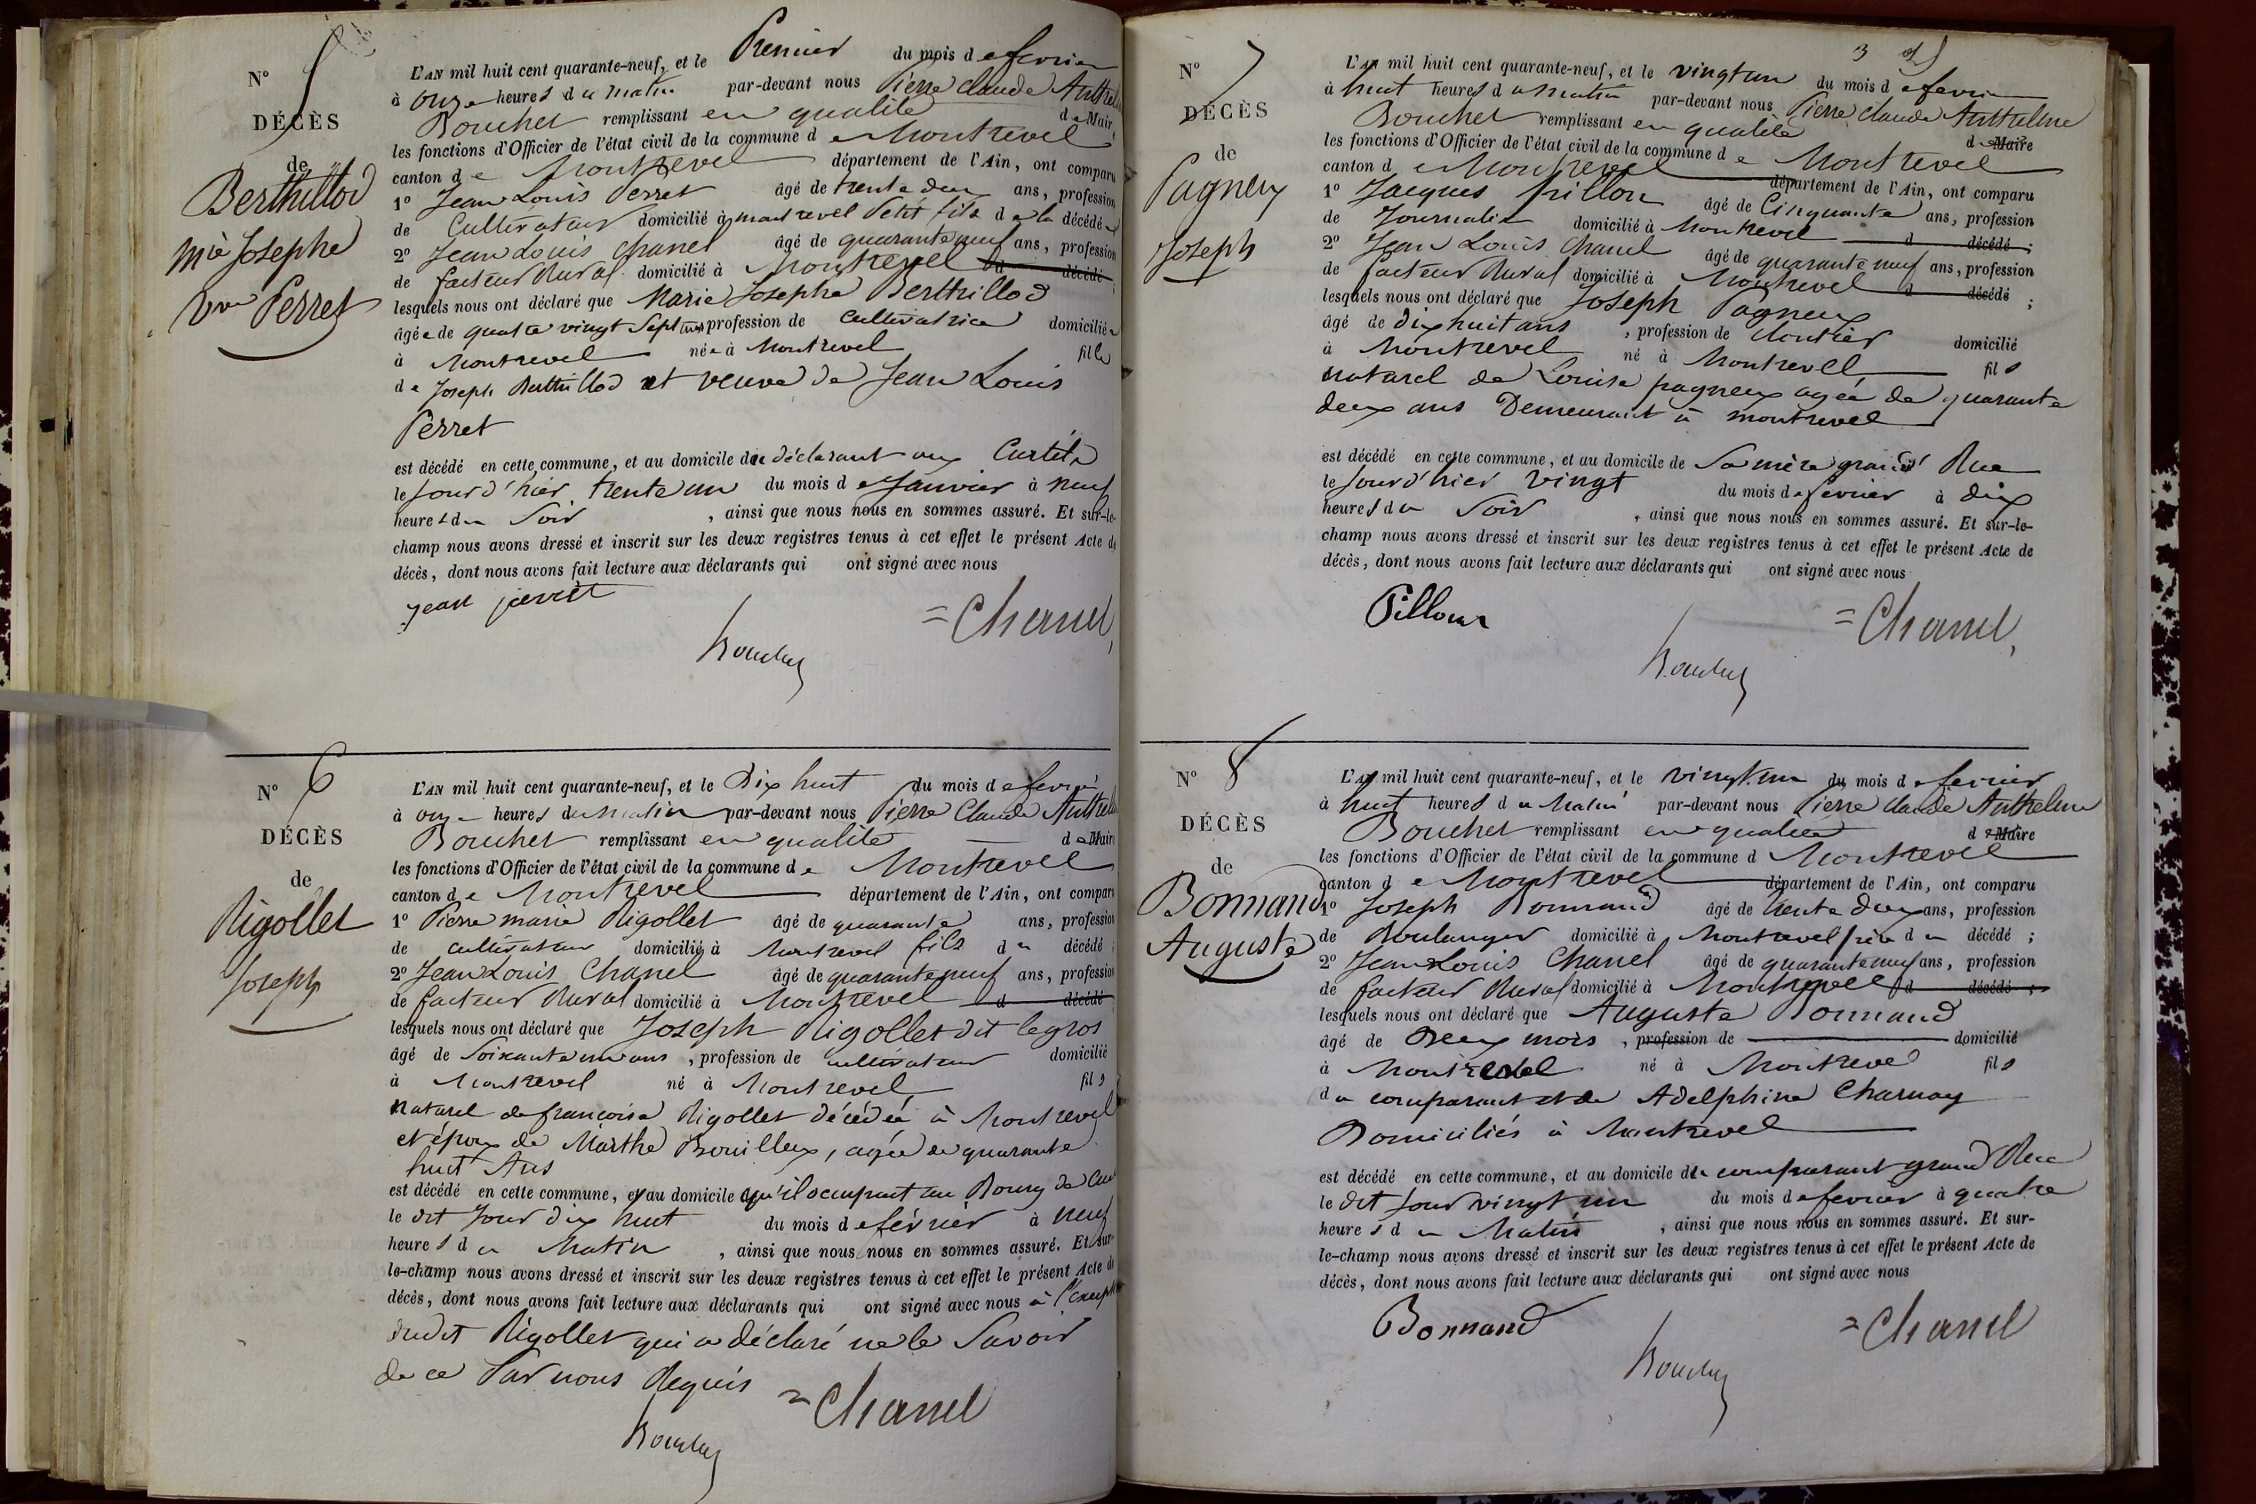 N° 5
DÉCÈS
de
Berthillod
Mie Josephe
Vve Perret
L'AN mil huit cent quarante-neuf, et le Premier du mois de fevrier
à onze heures du matin par-devant nous Pierre Claude Anthelme
Bouchet remplissant en qualité de Maire
les fonctions d'Officier de l'état civil de la commune de Montrevel
canton de Montrevel département de l'Ain, ont comparu
1° Jean Louis Perret âgé de trente deux ans, profession
de Cultivateur domicilié à montrevel Petit fils de la décédée
2° Jean Louis Chanel âgé de quarante neuf ans, profession
de facteur Rural domicilié à Montrevel d décédé ;
lesquels nous ont déclaré que Marie Josephe Berthillod
âgée de quatre vingt Sept ans profession de Cultivatrice domiciliée
à Montrevel née à Montrevel fille
de Joseph Berthillod et veuve de Jean Louis
Perret
est décédé en cette commune, et au domicile du déclarant aux Curtils
le Jour d'hier trente un du mois de Janvier à neuf
heures du Soir , ainsi que nous nous en sommes assuré. Et sur-le-
champ nous avons dressé et inscrit sur les deux registres tenus à cet effet le présent Acte de
décès, dont nous avons fait lecture aux déclarants qui ont signé avec nous
jean perret
= Chanel
Bouchet
N° 6
DÉCÈS
de
Rigollet
Joseph
L'AN mil huit cent quarante-neuf, et le Dix huit du mois de fevrier
à onze heures du matin par-devant nous Pierre Claude Anthelme
Bouchet remplissant en qualité de Maire
les fonctions d'Officier de l'état civil de la commune de Montrevel
canton de Montrevel département de l'Ain, ont comparu
1° Pierre marie Rigollet âgé de quarante ans, profession
de cultivateur domicilié à Montrevel fils du décédé ;
2° Jean Louis Chanel âgé de quarante neuf ans, profession
de facteur Rural domicilié à Montrevel d décédé
lesquels nous ont déclaré que Joseph Rigollet dit legros
âgé de Soixante un ans , profession de cultivateur domicilié
à Montrevel né à Montrevel fils
naturel de françoise Rigollet décédée à Montrevel
et époux de Marthe Bouilloux, agée de quarante
huit Ans
est décédé en cette commune, et au domicile qu'il occupait au Bourg de
le dit Jour dix huit du mois de février à neuf
heures du Matin , ainsi que nous nous en sommes assuré. Et sur-
le-champ nous avons dressé et inscrit sur les deux registres tenus à cet effet le présent Acte de
décès, dont nous avons fait lecture aux déclarants qui ont signé avec nous à l'exception
dudit Rigollet qui a déclaré ne le Savoir
de ce Par nous Requis
= Chanel
Bouchet
N° 7
DÉCÈS
de
Pagneux
Joseph
3
L'AN mil huit cent quarante-neuf, et le vingt un du mois de fevrier
à huit heures du matin par-devant nous Pierre Claude Anthelme
Bouchet remplissant en qualité de Maire
les fonctions d'Officier de l'état civil de la commune de Montrevel
canton de Montrevel département de l'Ain, ont comparu
1° Jacques Pillon âgé de Cinquante ans, profession
de Journalier domicilié à Montrevel d décédé ;
2° Jean Louis Chanel âgé de quarante neuf ans, profession
de facteur Rural domicilié à Montrevel d décédé ;
lesquels nous ont déclaré que Joseph Pagneux
âgé de dix huit ans , profession de Cloutier domicilié
à Montrevel né à Montrevel fils
naturel de Louise pagneux agée de quarante
deux ans Demeurant à montrevel
est décédé en cette commune, et au domicile de Sa mère grand' Rue
le Jour d'hier vingt du mois de fevrier à dix
heures du Soir , ainsi que nous nous en sommes assuré. Et sur-le-
champ nous avons dressé et inscrit sur les deux registres tenus à cet effet le présent Acte de
décès, dont nous avons fait lecture aux déclarants qui ont signé avec nous
Pillon
= Chanel
Bouchet
N° 8
DÉCÈS
de
Bonnand
Auguste
L'AN mil huit cent quarante-neuf, et le vingt un du mois de fevrier
à huit heures du Matin par-devant nous Pierre Claude Anthelme
Bouchet remplissant en qualité de Maire
les fonctions d'Officier de l'état civil de la commune d Montrevel
canton de Montrevel département de l'Ain, ont comparu
1° Joseph Bonnand âgé de trente deux ans, profession
de Boulanger domicilié à Montrevel père du décédé ;
2° Jean Louis Chanel âgé de quarante neuf ans, profession
de facteur Rural domicilié à Montrevel d décédé ;
lesquels nous ont déclaré que Auguste Bonnand
âgé de Deux mois , profession de domicilié
à Montrevel né à Montrevel fils
du comparant et de Adelphine Charnay
Domiciliés à Montrevel
est décédé en cette commune, et au domicile du comparant grand Rue
le dit Jour vingt un du mois de fevrier à quatre
heures du Matin , ainsi que nous nous en sommes assuré. Et sur-
le-champ nous avons dressé et inscrit sur les deux registres tenus à cet effet le présent Acte de
décès, dont nous avons fait lecture aux déclarants qui ont signé avec nous
Bonnand
= Chanel
Bouchet